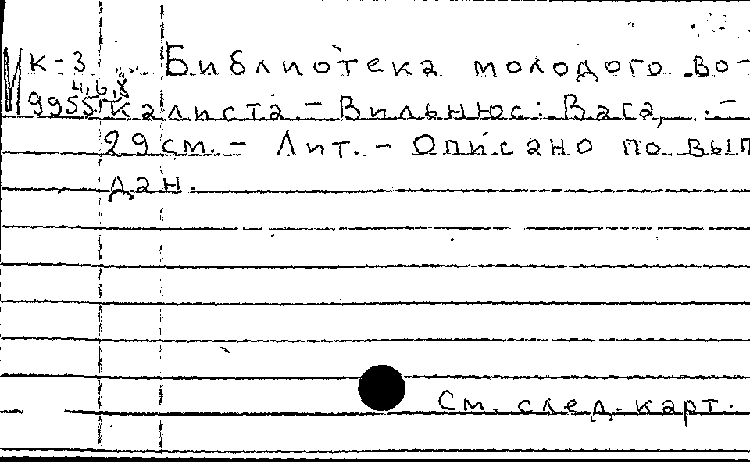 К-3 Библиотека молодого во-
4,6,8
9955 калиста.- Вильнюс: Вага, .-
29 см. - Лит. - Описано по вып
дан.
См. след. карт.